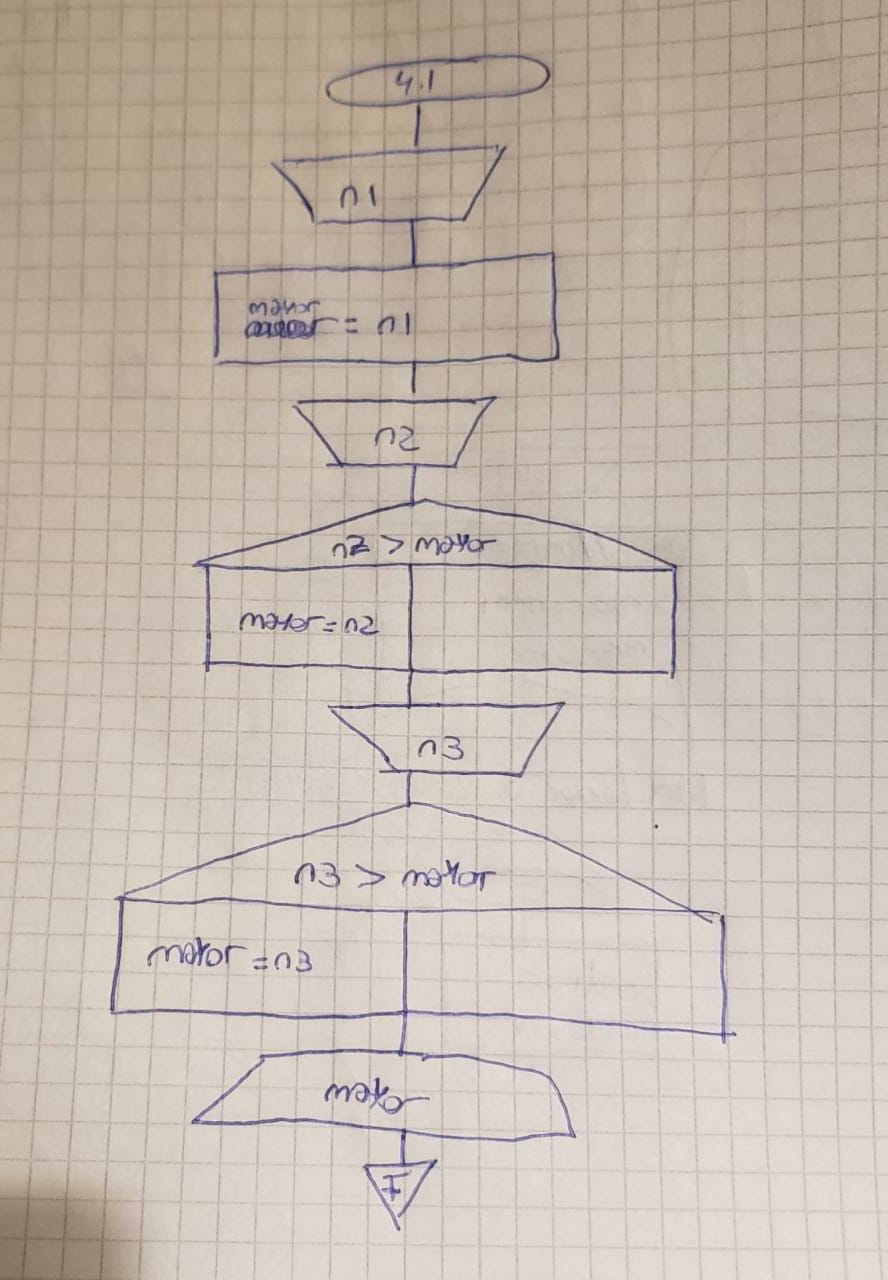 4.1
n1
mayor
= n1
n2
n2 > mayor
mayor = n2
n3
n3 > mayor
mayor = n3
mayor
F